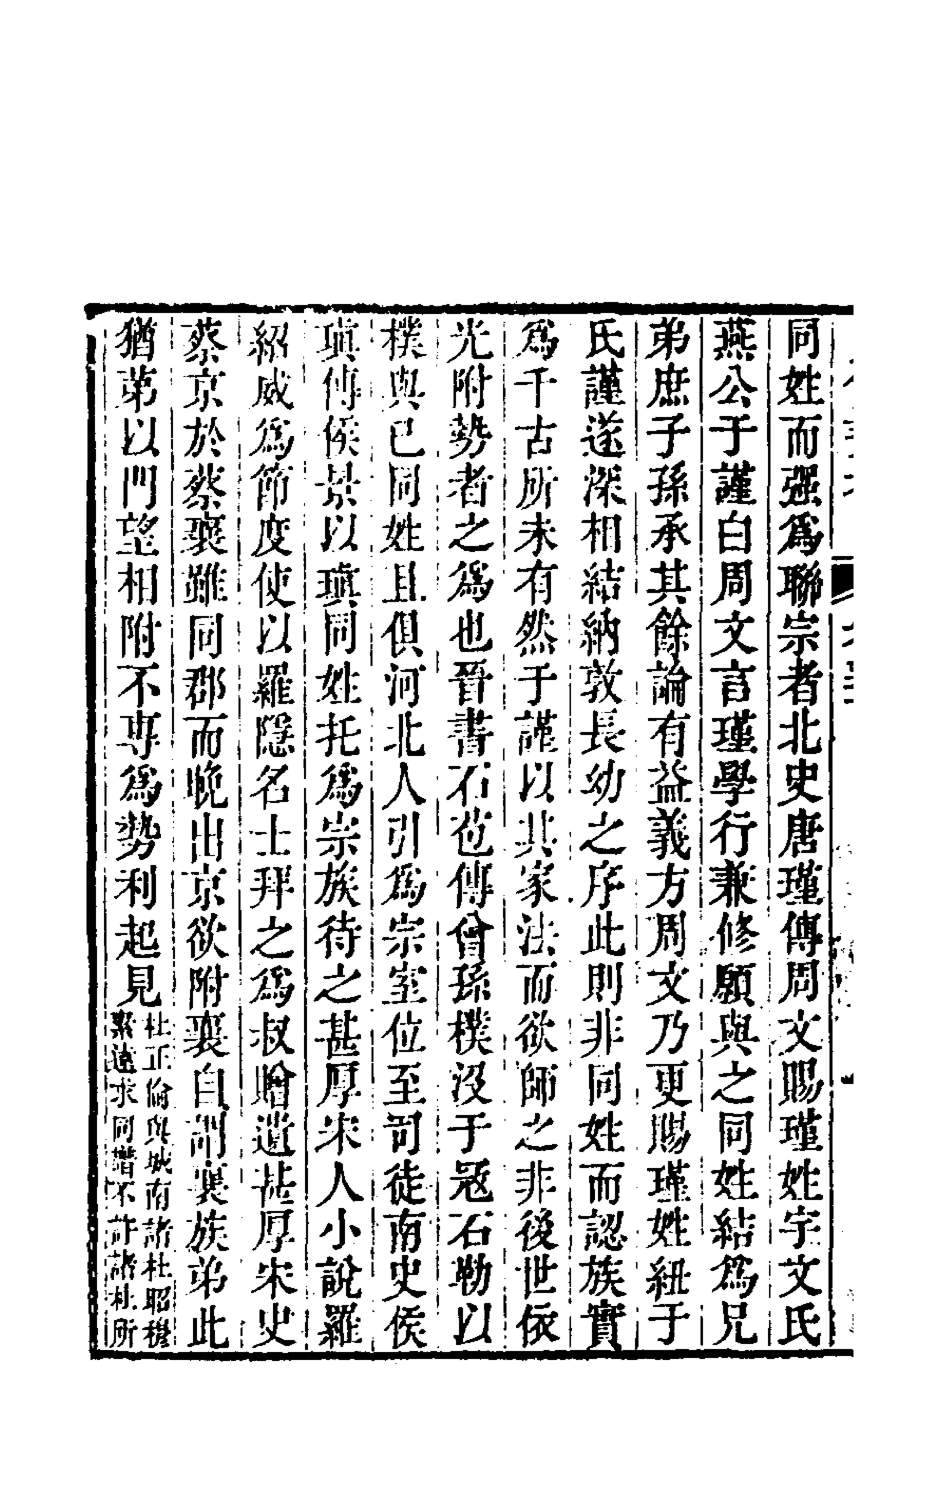 同姓而强爲聯宗者北史唐瑾傳周文賜瑾姓宇文氏
燕公于謹白周文言瑾學行兼修願與之同姓結爲兄
弟庶子孫承其餘論有益義方周文乃更賜瑾姓紐于
氏謹遂深相結納敦長幼之序此則非同姓而認族實
爲千古所未有然于謹以其家法而欲師之非後世依
光附勢者之爲也晉書石苞傳曾孫樸没于冦石勒以
樸與已同姓且俱河北人引爲宗室位至司徒南史侯
瑱傳侯景以瑱同姓托爲宗族待之甚厚宋人小說羅
紹威爲節度使以羅隱名士拜之爲叔贈遺甚厚宋史
蔡京於蔡襄雖同郡而晚出京欲附襄自謂襄族弟此
猶第以門望相附不専爲勢利起見
杜正倫與城南諸杜昭穆
素遠求同譜不許諸杜所